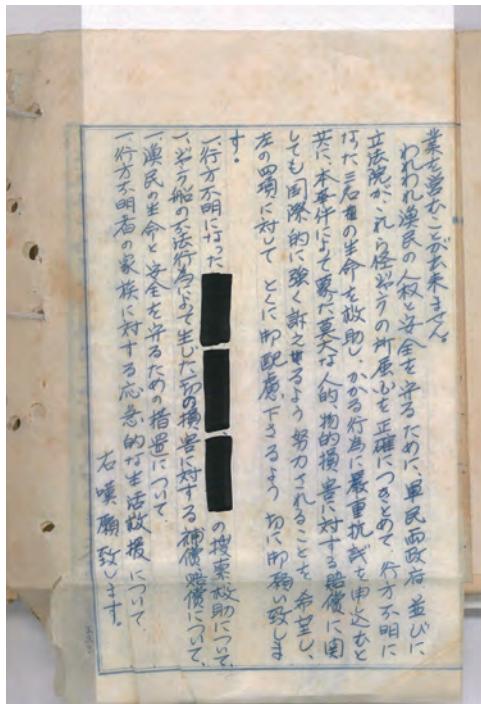 業を営むことが出来ません。
われわれ漁民の人权と安全を守るために、軍民両政府並びに
立法院が、これら怪ジャンクの所属心を正確につきとめて、行方不明に
なった三名の生命を救助し、かかる行為に厳重抗議を申込むと
共に、本事件によって蒙った莫大な人的、物的損害に対する賠償に関
しても国際的に強く訴えせるよう努力されることを希望し、
左の四項に対して とくに御配慮下さるよう 切に御願い致しま
す。
一、行方不明になった の捜索救助について、
一、ジャンク船の不法行為によって生じた一切の損害に対する補償賠償について、
一、漁民の生命と安全を守るための措置について
一、行方不明者の家族に対する応急的な生活救援について
右嘆願致します。